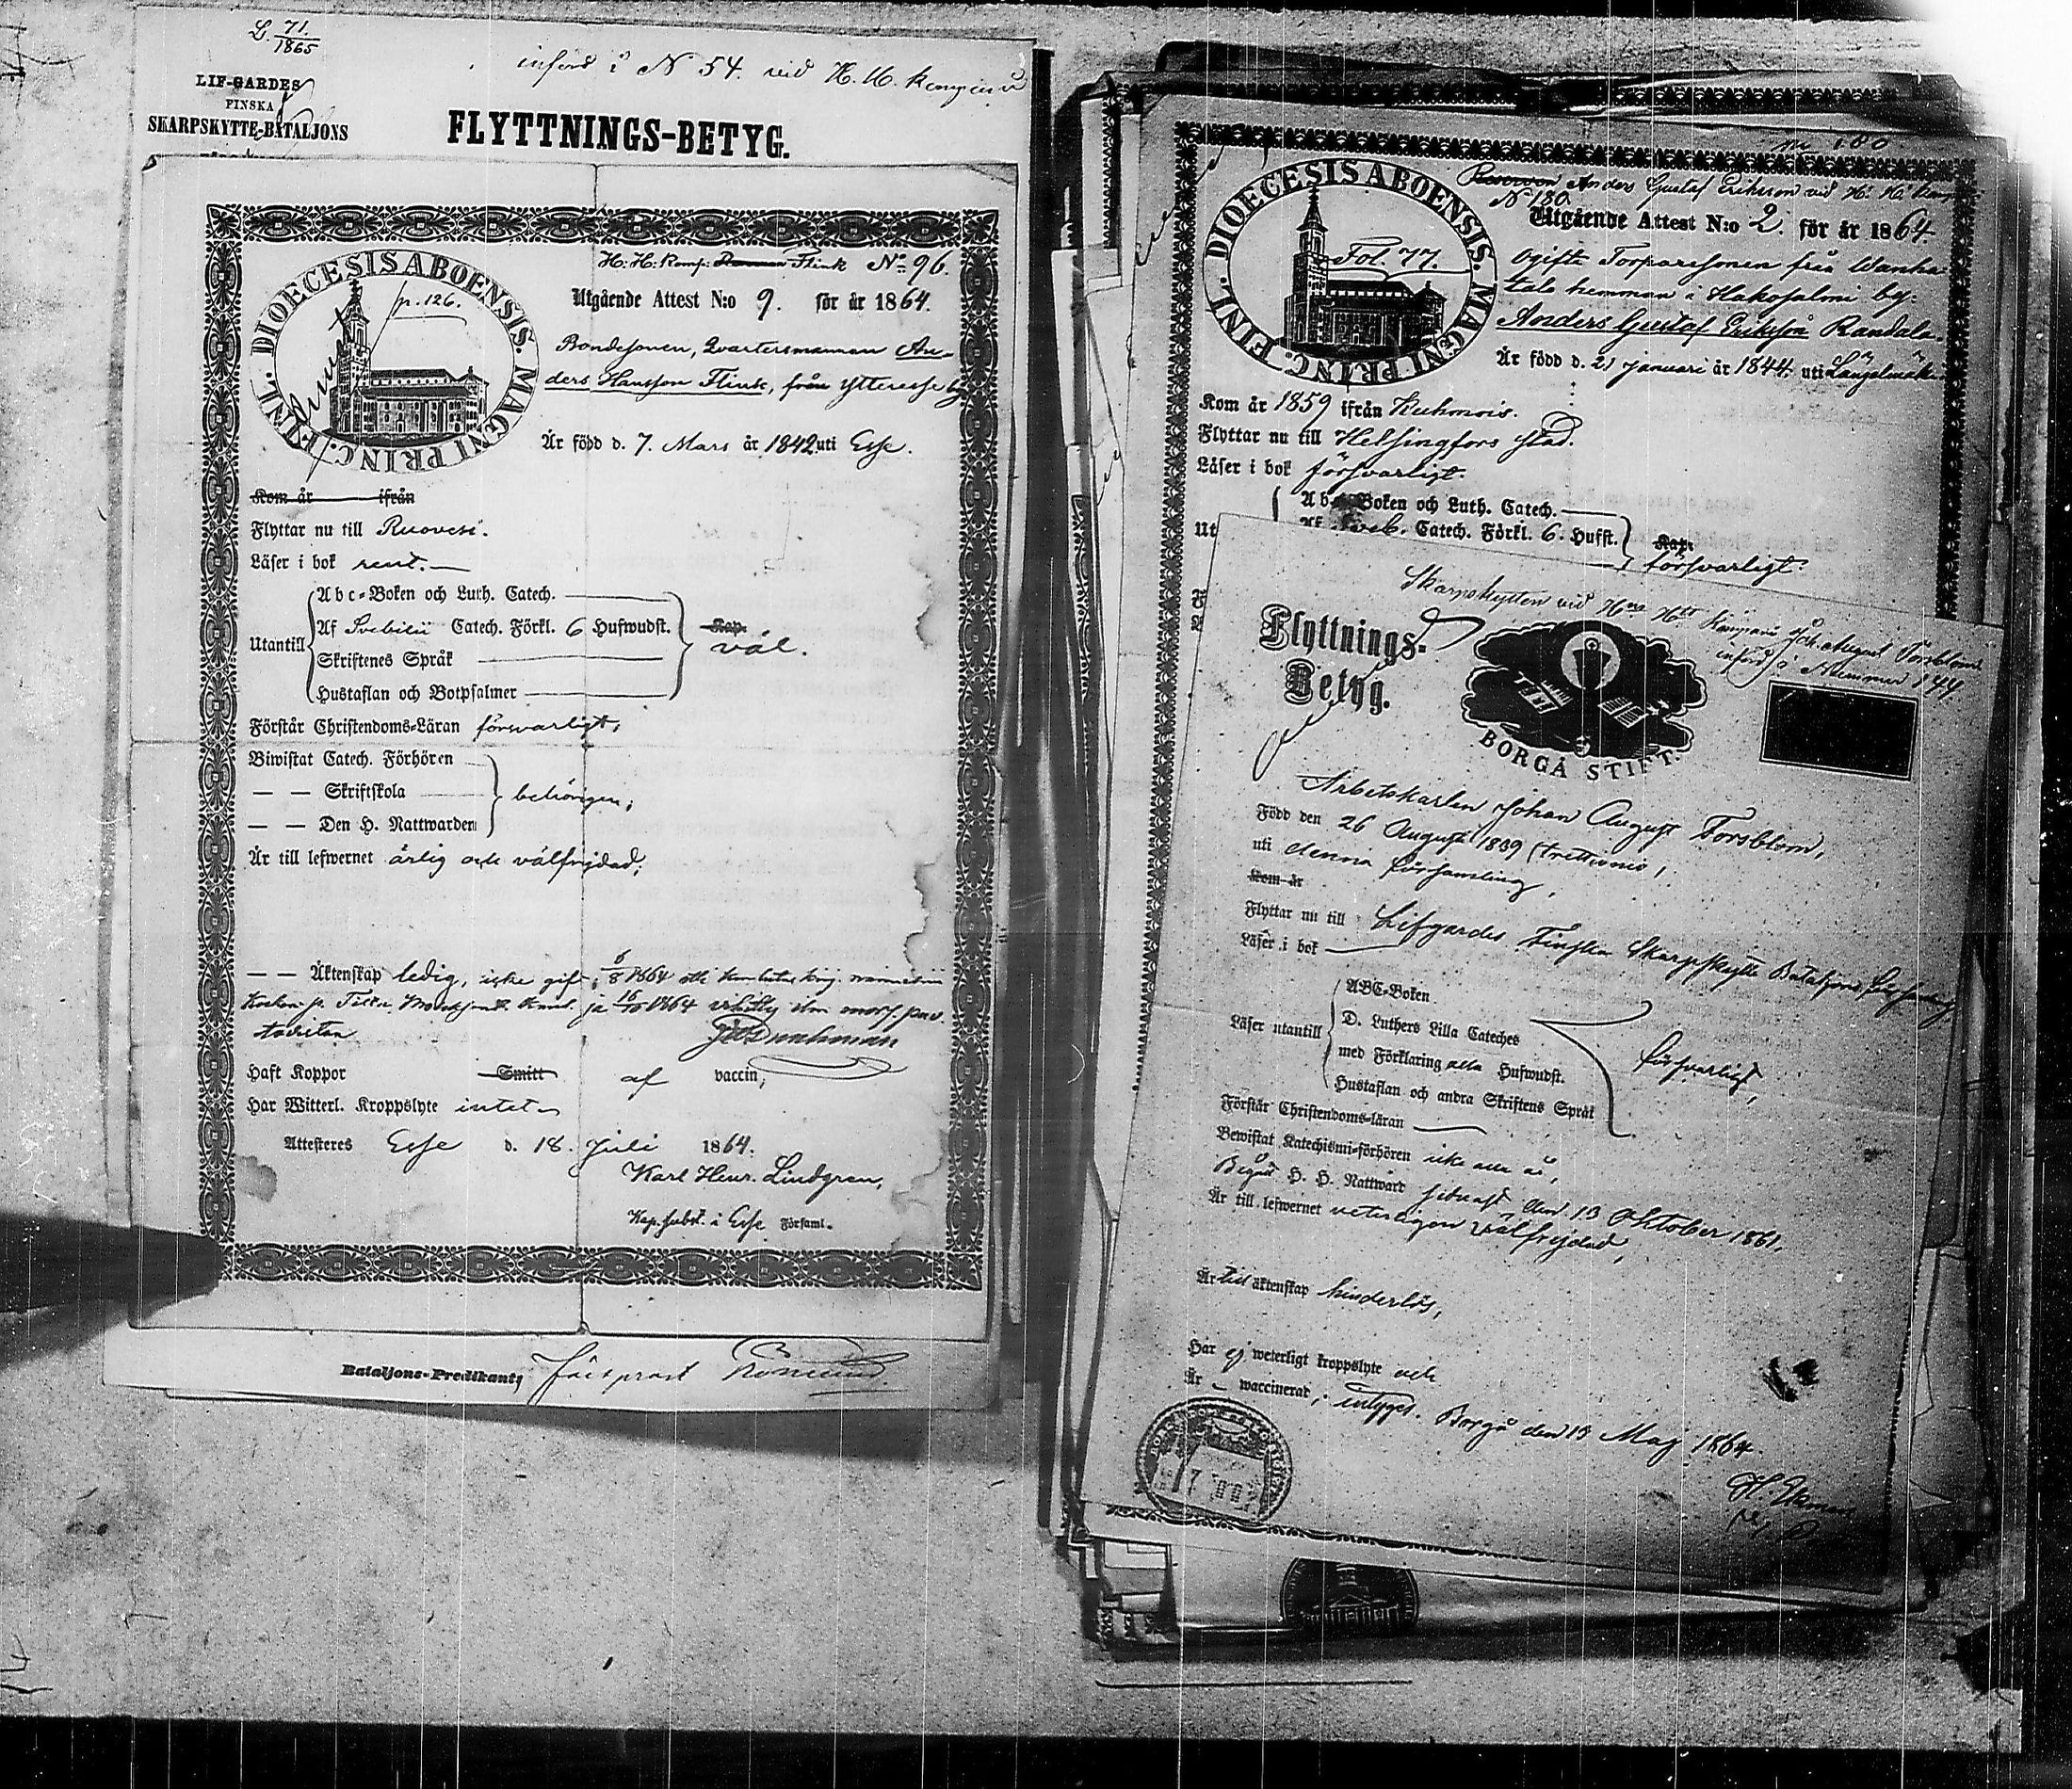 L. 71/1865
införd i N 54. vid H. H. Kompaniu
LIF-GARDES
FINSKA
SKARPSKYTTE-BATALJONS
FLYTTNINGS-BETYG.
DIOECESIS ABOENSIS. MAGNI PRINC. FINL.
p. 126.
H: H: Komp: Flink No: 96.
Utgående Attest N:o 9. för år 1864.
Bondesonen, Qvartersmannen An-
ders Hansson Flink, från Ytteresse by
Är född d. 7. Mars år 1842 uti Esse.
Kom år ifrån
Flyttar nu till Ruovesi.
Läser i bok rent.
Utantill
Abc-Boken och Luth. Catech.
Af Svebilii Catech. Förkl. 6 Hufwudst.
Skriftenes Språk
Hustaflan och Botpsalmer
Kap.
väl.
Förstår Christendoms-Läran försvarligt;
Biwistat Catech. Förhören
— — Skriftskola
— — Den H. Nattwarden
behörigen;
Är till lefwernet ärlig och välfrejdad;
— — Äktenskap ledig, icke gift; 6/8 1864
16/10 1864
Haft Koppor Smitt af vaccin;
Har Witterl. Kroppslyte intet
Attesteres Esse d. 18. Juli 1864.
Karl Henr. Lindgren,
Kap. subst. i Esse Församl.
Bataljons-Predikant,
DIOECESIS ABOENSIS. MAGNI PRINC. FINL.
Fol. 77.
Anders Gustaf Eriksson vid H: H: Komp
N 180
Utgående Attest N:o 2. för år 1864.
Ogifte Torparesonen från Wanha-
talo hemman i Hakosalmi by.
Anders Gustaf Eriksson Randala.
Är född d. 21 januari år 1844 uti Längelmäki
Kom år 1859 ifrån Kuhmois.
Flyttar nu till Helsingfors stad.
Läser i bok försvarligt.
Abc-Boken och Luth. Catech.
Af Sveb. Catech. Förkl. 6. Hufst.
Kap.
försvarligt.
Skarpskytten vid Hns Htts Kompani Joh. August Forsblom
införd i Nummer 144
Flyttnings-
Betyg.
BORGÅ STIFT.
Arbetskarlen Johan August Forsblom,
Född den 26 Augusti 1839 (trettionio),
uti denna församling,
Kom år
Flyttar nu till Lifgardes Finska Skarpskytte Bataljons församling,
Läser i bok
Läser utantill
ABC-Boken
D. Luthers Lilla Cateches
med Förklaring alla Hufwudst.
Hustaflan och andra Skriftens Språk
försvarligt,
Förstår Christendoms-läran
Bewistat Katechismi-förhören icke alla år,
Begått H. H. Nattward senast den 13 Oktober 1861.
Är till lefwernet veterligen välfrejdad,
Är till äktenskap hinderlös,
Har ej weterligt kroppslyte och
Är waccinerad; intygas. Borgå den 13 Maj 1864
H. Ekman